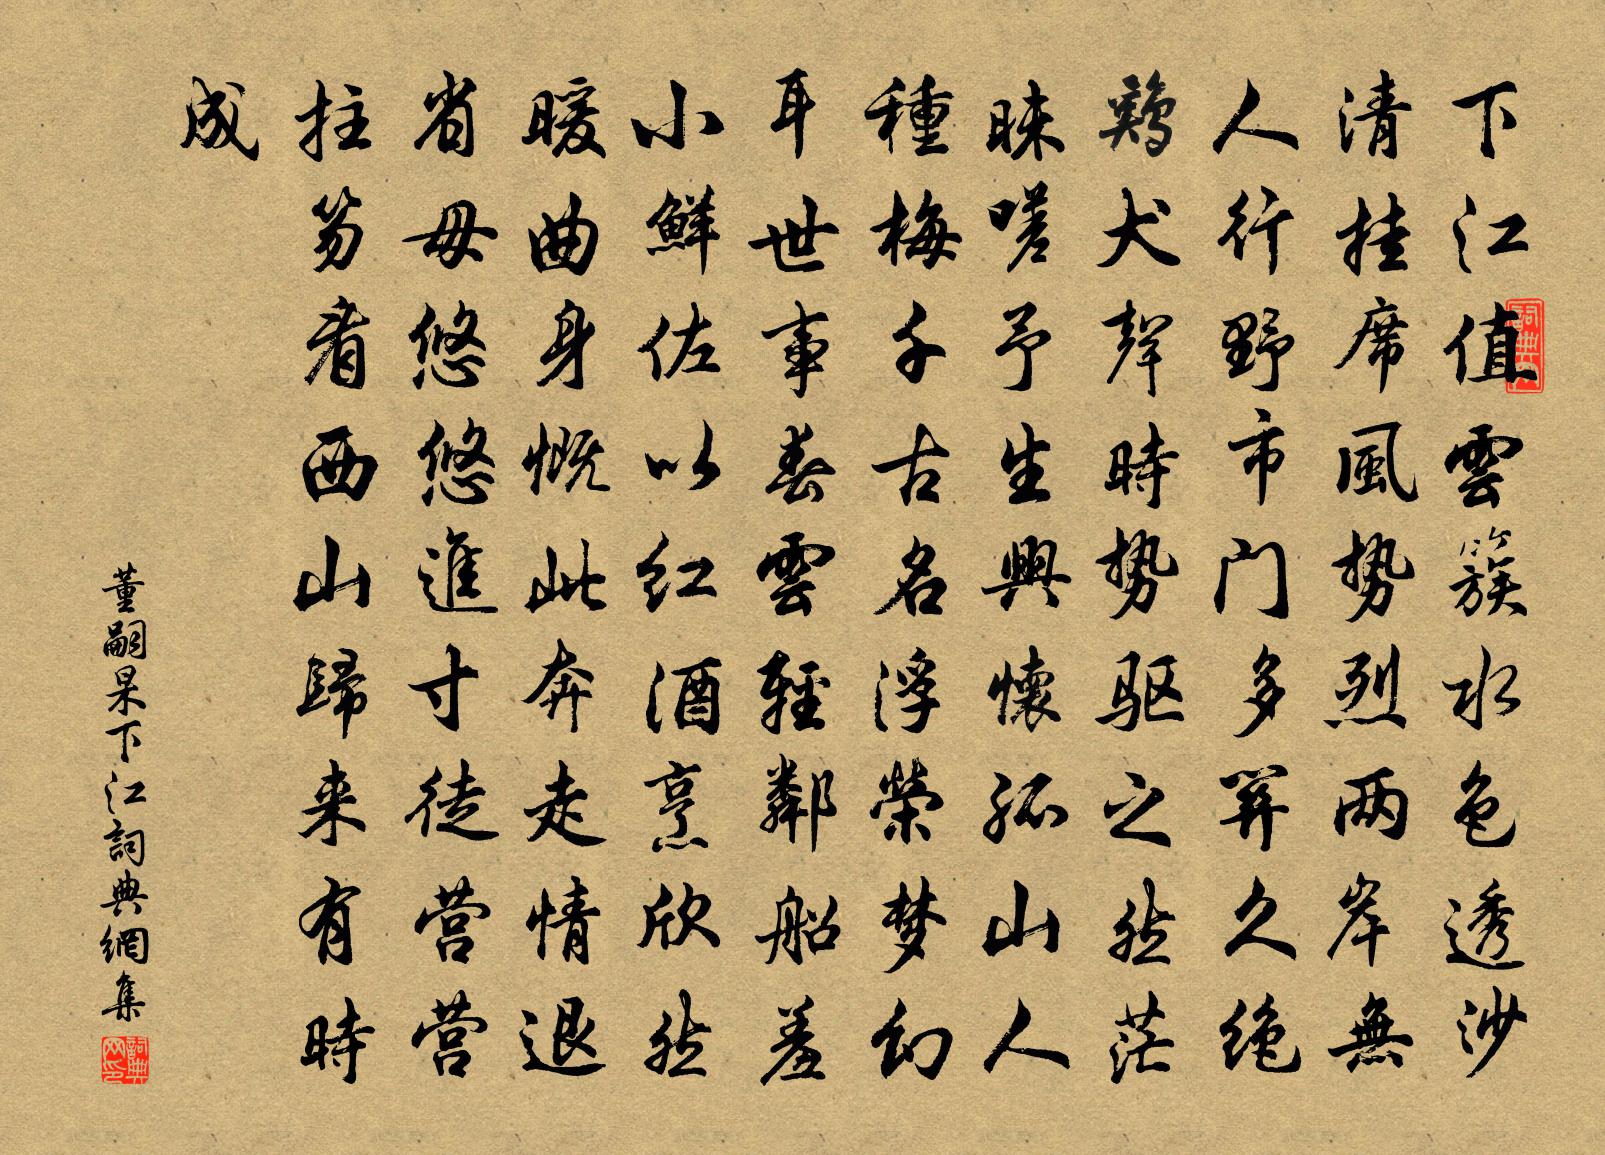 下江值雲簇水色透沙
清挂席風势烈两岸無
人行野市门多關久绝
鷄犬聲時势驱之然茫
昧嗟予生興懷孤山人
種梅千古名浮榮梦幻
耳世事春雲輕鄰船羞
小鮮佐以红酒烹欣然
暖曲身慨此奔走情退
省毋悠悠進寸徒营营
拄笏看西山歸来有時
成
董嗣杲下江詞典網集
詞典网印